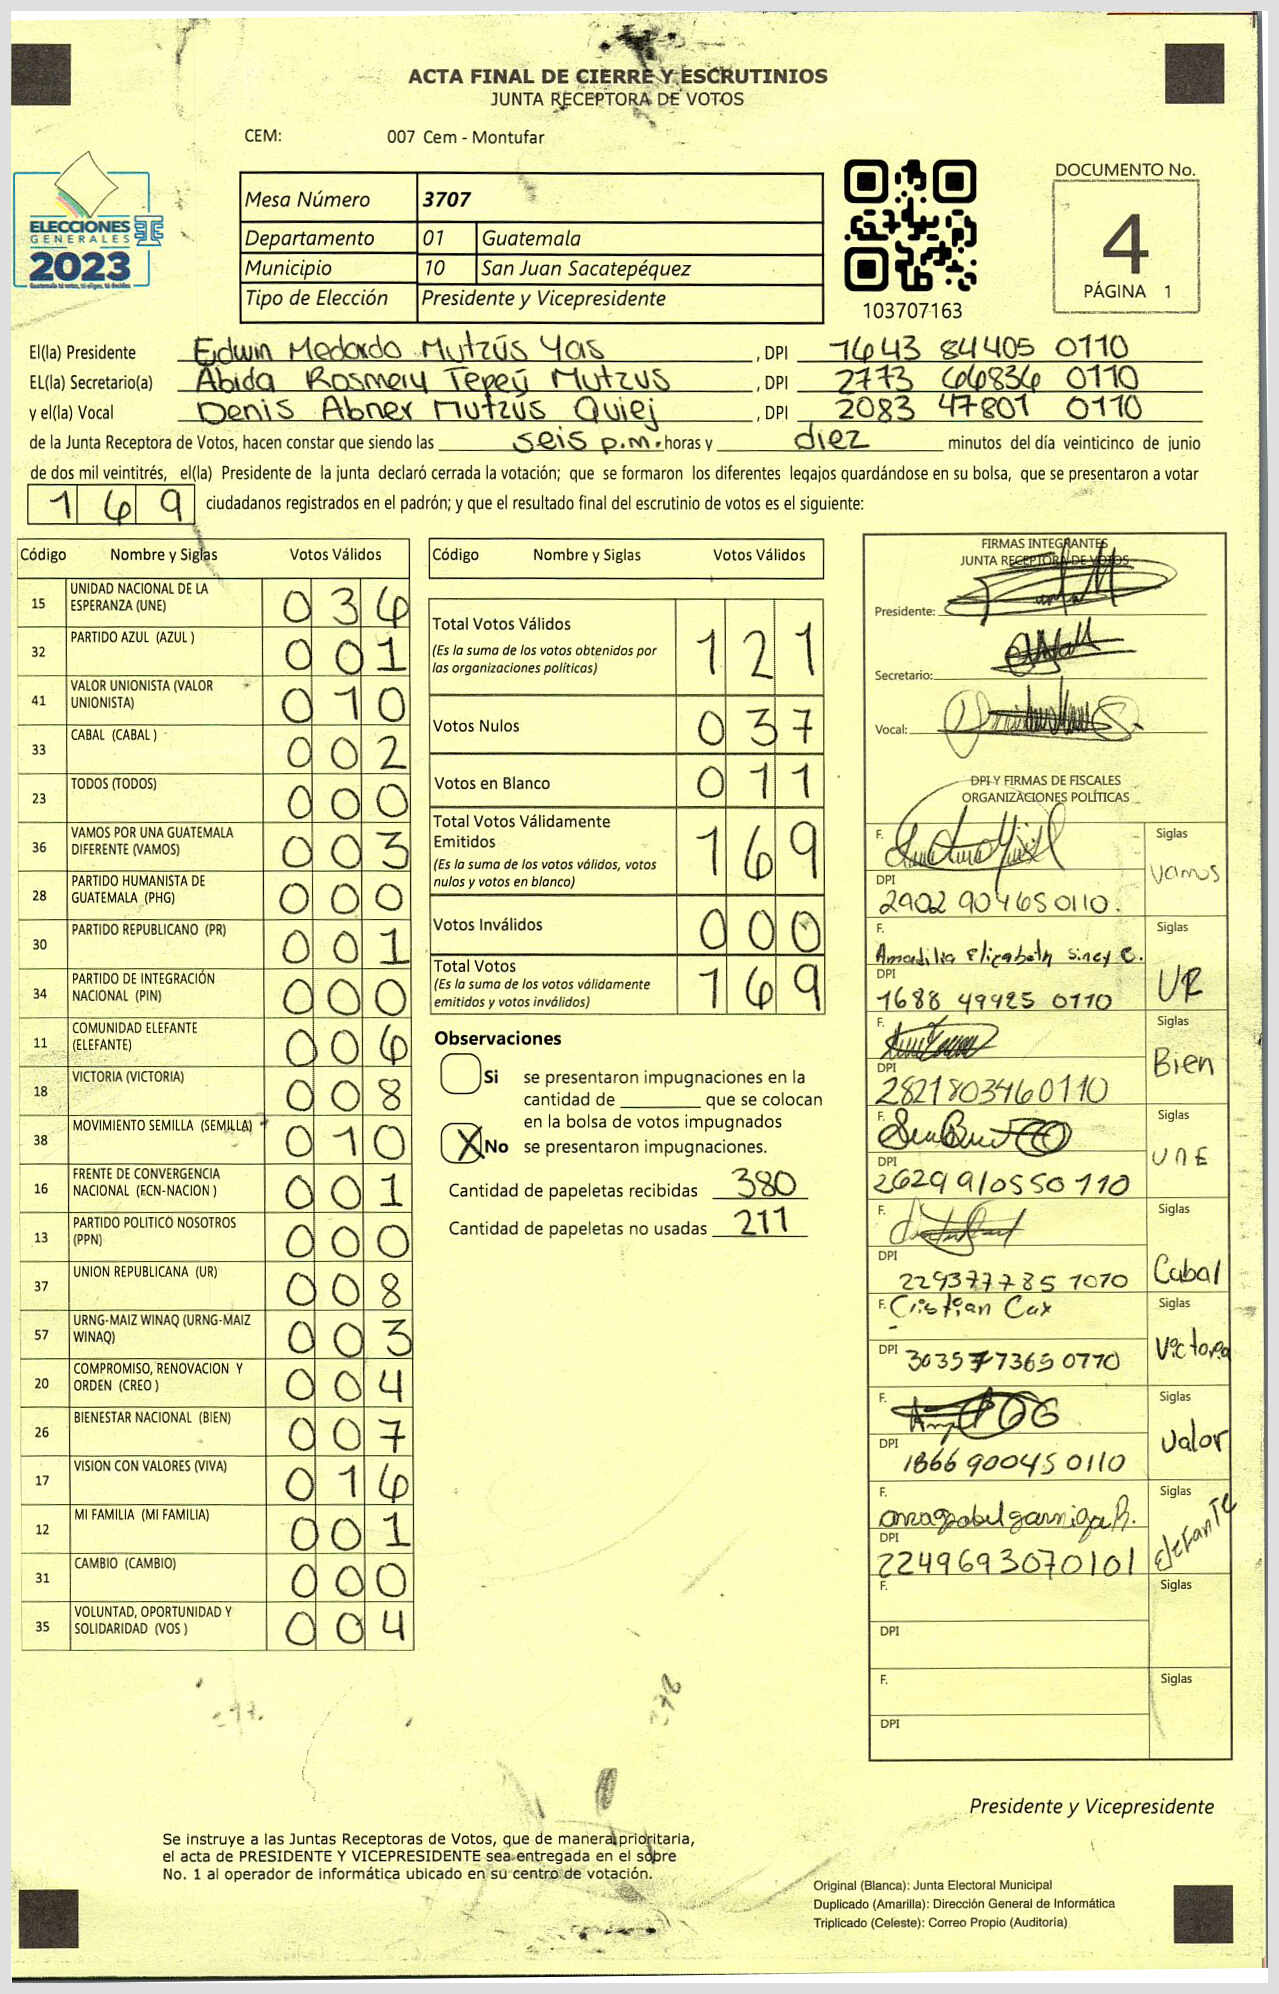 ACTA FINAL DE CIERRE Y ESCRUTINIOS
JUNTA RECEPTORA DE VOTOS
CEM: 007 Cem - Montufar
ELECCIONES
GENERALES
2023
Guatemala tú votas, tú eliges, tú decides
Mesa Número 3707
Departamento 01 Guatemala
Municipio 10 San Juan Sacatepéquez
Tipo de Elección Presidente y Vicepresidente
103707163
DOCUMENTO No.
4
PÁGINA 1
El(la) Presidente Edwin Medardo Mutzús Yas, DPI 1643 84405 0110
EL(la) Secretario(a) Abida Rosmery Tepeý Mutzus, DPI 2773 66836 0110
y el(la) Vocal Denis Abner Mutzus Quiej, DPI 2083 47801 0110
de la Junta Receptora de Votos, hacen constar que siendo las seis p.m. horas y diez minutos del día veinticinco de junio
de dos mil veintitrés, el(la) Presidente de la junta declaró cerrada la votación; que se formaron los diferentes legajos guardándose en su bolsa, que se presentaron a votar
169 ciudadanos registrados en el padrón; y que el resultado final del escrutinio de votos es el siguiente:
Código Nombre y Siglas Votos Válidos
15 UNIDAD NACIONAL DE LA
ESPERANZA (UNE) 036
32 PARTIDO AZUL (AZUL ) 001
41 VALOR UNIONISTA (VALOR
UNIONISTA) 010
33 CABAL (CABAL ) 002
23 TODOS (TODOS) 000
36 VAMOS POR UNA GUATEMALA
DIFERENTE (VAMOS) 003
28 PARTIDO HUMANISTA DE
GUATEMALA (PHG) 000
30 PARTIDO REPUBLICANO (PR) 001
34 PARTIDO DE INTEGRACIÓN
NACIONAL (PIN) 000
11 COMUNIDAD ELEFANTE
(ELEFANTE) 006
18 VICTORIA (VICTORIA) 008
38 MOVIMIENTO SEMILLA (SEMILLA) 010
16 FRENTE DE CONVERGENCIA
NACIONAL (FCN-NACION ) 001
13 PARTIDO POLITICO NOSOTROS
(PPN) 000
37 UNION REPUBLICANA (UR) 008
57 URNG-MAIZ WINAQ (URNG-MAIZ
WINAQ) 003
20 COMPROMISO, RENOVACION Y
ORDEN (CREO ) 004
26 BIENESTAR NACIONAL (BIEN) 007
17 VISION CON VALORES (VIVA) 016
12 MI FAMILIA (MI FAMILIA) 001
31 CAMBIO (CAMBIO) 000
35 VOLUNTAD, OPORTUNIDAD Y
SOLIDARIDAD (VOS ) 004
Código Nombre y Siglas Votos Válidos
Total Votos Válidos 121
(Es la suma de los votos obtenidos por
las organizaciones políticas)
Votos Nulos 037
Votos en Blanco 011
Total Votos Válidamente
Emitidos 169
(Es la suma de los votos válidos, votos
nulos y votos en blanco)
Votos Inválidos 000
Total Votos 169
(Es la suma de los votos válidamente
emitidos y votos inválidos)
Observaciones
Si se presentaron impugnaciones en la
cantidad de ________ que se colocan
en la bolsa de votos impugnados
X No se presentaron impugnaciones.
Cantidad de papeletas recibidas 380
Cantidad de papeletas no usadas 211
FIRMAS INTEGRANTES
JUNTA RECEPTORA DE VOTOS
Presidente:
Secretario:
Vocal:
DPI Y FIRMAS DE FISCALES
ORGANIZACIONES POLÍTICAS
F. Siglas
Vamos
DPI
2902 90465 0110.
F. Siglas
Amadilia Elizabeth Siney C.
UR
DPI
1688 49925 0110
F. Siglas
Bien
DPI
2821803460110
F. Siglas
UNE
DPI
2629910550110
F. Siglas
Cabal
DPI
229377785 1010
F. Cristian Cux Siglas
Victoria
DPI 3035773650770
F. Siglas
Valor
DPI
1866 90045 0110
F. Siglas
Elefante
DPI
2249693070101
F. Siglas
DPI
F. Siglas
DPI
Presidente y Vicepresidente
Se instruye a las Juntas Receptoras de Votos, que de manera prioritaria,
el acta de PRESIDENTE Y VICEPRESIDENTE sea entregada en el sobre
No. 1 al operador de informática ubicado en su centro de votación.
Original (Blanca): Junta Electoral Municipal
Duplicado (Amarilla): Dirección General de Informática
Triplicado (Celeste): Correo Propio (Auditoría)